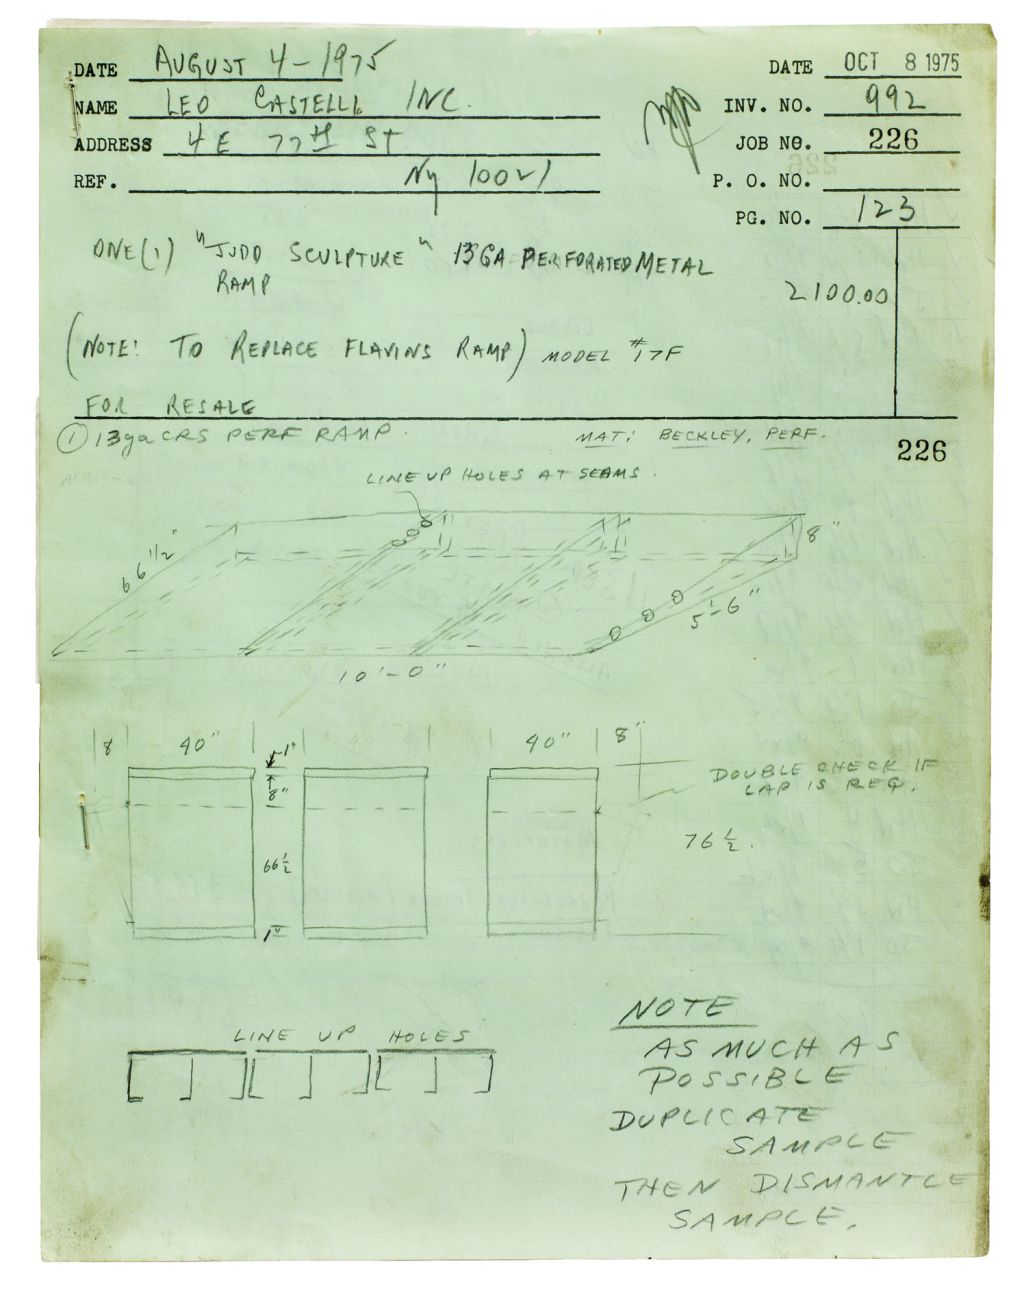 DATE AUGUST 4-1975
NAME LEO CASTELLI INC.
ADDRESS 4 E 77TH ST
REF. NY 10021
DATE OCT 8 1975
INV. NO. 992
JOB NO. 226
P. O. NO.
PG. NO. 123
ONE (1) "JUDD SCULPTURE" 13GA PERFORATED METAL
RAMP
2100.00
(NOTE: TO REPLACE FLAVINS RAMP) MODEL #17F
FOR RESALE
① 13ga CRS PERF RAMP.
MAT: BECKLEY, PERF.
226
LINE UP HOLES AT SEAMS.
66 1/2"
8"
5'-6"
10'-0"
8 40" 1" 40" 8"
8"
DOUBLE CHECK IF
LAP IS REQ.
66 1/2
76 1/2.
1"
LINE UP HOLES
NOTE
AS MUCH AS
POSSIBLE
DUPLICATE
SAMPLE
THEN DISMANTLE
SAMPLE.